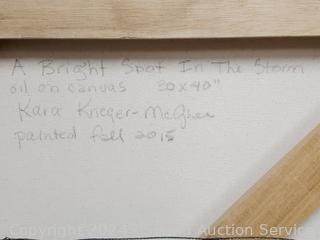 A Bright Spot In The Storm
oil on canvas 30x40"
Kara Krieger-McGhee
painted fall 2015
Copyright 2024 Auction Service